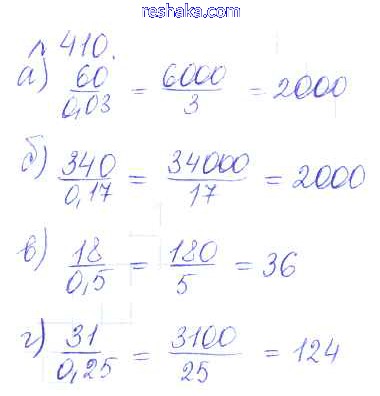 reshaka.com
№ 410.
а) 60/0,03 = 6000/3 = 2000
б) 340/0,17 = 34000/17 = 2000
в) 18/0,5 = 180/5 = 36
г) 31/0,25 = 3100/25 = 124